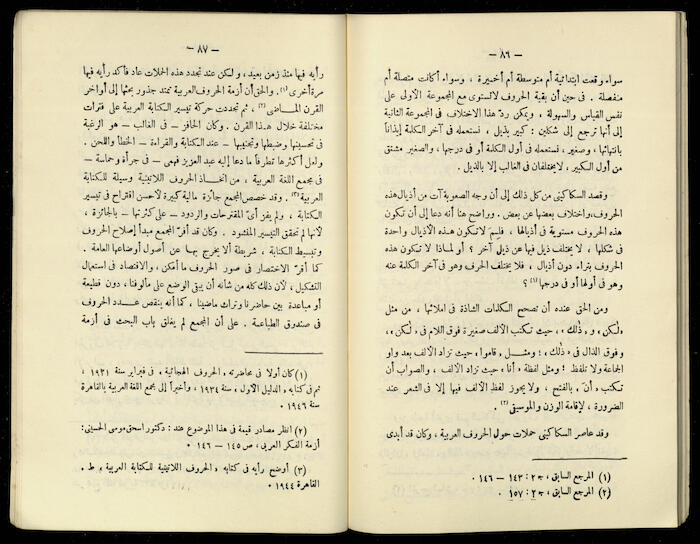 — ٨٦ —
سواء وقعت ابتدائية أم متوسطة أم أخيرة ، وسواء أكانت متصلة أم
منفصلة . فى حين أن بقية الحروف لا تستوى مع المجموعة الأولى على
نفس القياس والسهولة ، ويمكن ردّ هذا الاختلاف فى المجموعة الثانية
إلى أنها ترجع إلى شكلين : كبير بذيل ، نستعمله فى آخر الكلمة إيذاناً
بانتهائها ، وصغير ، نستعمله فى أول الكلمة أو فى درجها ، والصغير مشتق
من أول الكبير ، لا يختلفان فى الغالب إلا بالذيل .
وقصد السكاكينى من كل ذلك إلى أن وجه الصعوبة آت من أذيال هذه
الحروف واختلاف بعضها عن بعض . وواضح هنا أنه دعا إلى أن تكون
هذه الحروف مستوية فى أذيالها ، فلِمَ لا تكون هذه الأذيال واحدة
فى شكلها ، لا يختلف ذيل فيها عن ذيل آخر ؟ أو لماذا لا تكون هذه
الحروف بتراء دون أذيال ، فلا يختلف الحرف وهو فى آخر الكلمة عنه
وهو فى أولها أو فى درجها (١) ؟
ومن الحق عنده أن تصحح الكلمات الشاذة فى املائها ، من مثل
«لكن» و «ذلك» ، حيث تكتب الألف صغيرة فوق اللام فى «لكن» ،
وفوق الذال فى «ذلك» ؛ ومثل «قاموا» حيث تزاد الألف بعد واو
الجماعة ولا تلفظ ؛ ومثل لفظة «أنا» حيث تزاد الألف ، والصواب أن
تكتب «أنَ» بالفتح ، ولا يجوز لفظ الألف فيها إلا فى الشعر عند
الضرورة ، لإقامة الوزن والموسيقى (٢) .
وقد عاصر السكاكينى حملات حول الحروف العربية ، وكان قد أبدى
(١) المرجع السابق ، ج ٢ : ١٤٣ — ١٤٦ .
(٢) المرجع السابق ، ج ٢ : ١٥٧ .
— ٨٧ —
رأيه فيها منذ زمن بعيد ، ولكن عند تجدد هذه الحملات عاد فأكد رأيه فيها
مرة أخرى (١) . والحق أن أزمة الحروف العربية تمتد جذور بحثها إلى أواخر
القرن الماضى (٢) ، ثم تجددت حركة تيسير الكتابة العربية على فترات
مختلفة خلال هذا القرن . وكان الحافز — فى الغالب — هو الرغبة
فى تحسينها وضبطها وتجنيبها — عند الكتابة والقراءة — الخطأ واللحن .
ولعل أكثرها تطرفاً ما دعا إليه عبد العزيز فهمى — فى جرأة وحماسة —
فى مجمع اللغة العربية ، من اتخاذ الحروف اللاتينية وسيلة للكتابة
العربية (٣) . وقد خصص المجمع جائزة مالية كبيرة لأحسن اقتراح فى تيسير
الكتابة ، ولم يفز أىّ المقترحات والردود — على كثرتها — بالجائزة ،
لأنها لم تحقق التيسير المنشود . وكان قد أقرّ المجمع مبدأ إصلاح الحروف
وتبسيط الكتابة ، شريطة ألا يخرج بها عن أصول أوضاعها العامة .
كما أقرّ الاختصار فى صور الحروف ما أمكن ، والاقتصاد فى استعمال
التشكيل ، لأن ذلك كله من شأنه أن يبقى الوضع على مألوفنا ، دون قطيعة
أو مباعدة بين حاضرنا وتراث ماضينا ، كما أنه ينقص عدد الحروف
فى صندوق الطباعة . على أن المجمع لم يغلق باب البحث فى أزمة
(١) كان أولا فى محاضرته «الحروف الهجائية» فى فبراير سنة ١٩٣١ ،
ثم فى كتابه «الدليل الأول» سنة ١٩٣٤ ، وأخيراً إلى مجمع اللغة العربية بالقاهرة
سنة ١٩٤٦ .
(٢) انظر مصادر قيمة فى هذا الموضوع عند : دكتور اسحق موسى الحسينى :
أزمة الفكر العربى ، ص ١٤٥ — ١٤٦ .
(٣) أوضح رأيه فى كتابه «الحروف اللاتينية للكتابة العربية» ط .
القاهرة ١٩٤٤ .